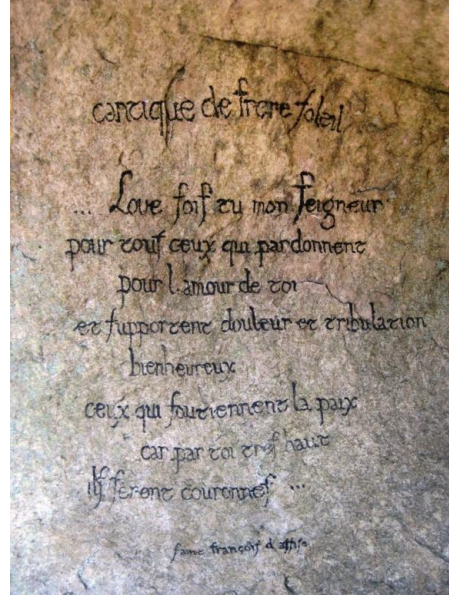 cantique de frere soleil
... Loué sois tu mon seigneur
pour tous ceux qui pardonnent
pour l'amour de toi
et supportent douleur et tribulation
bienheureux
ceux qui soutiennent la paix
car par toi tres haut
ils seront couronnes ...
saint françois d assise